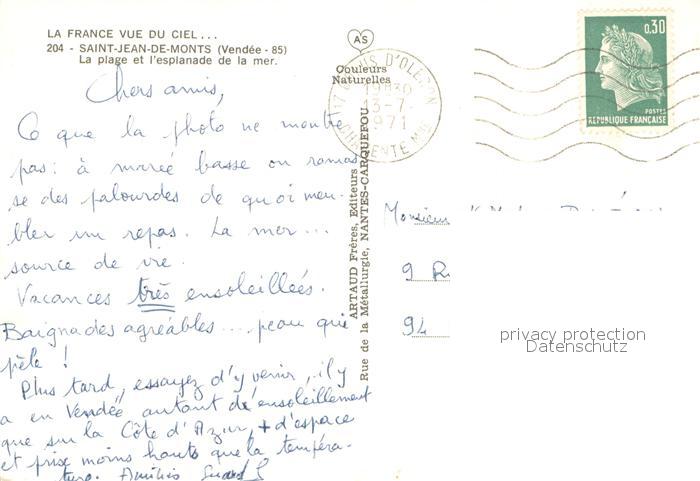 LA FRANCE VUE DU CIEL...
204 - SAINT-JEAN-DE-MONTS (Vendée - 85)
La plage et l'esplanade de la mer.
Chers amis,
Ce que la photo ne montre
pas : à marée basse on ramas
se des palourdes de quoi meu-
bler un repas. La mer...
source de vie.
Vacances très ensoleillées.
Baignades agréables .... peau qui
pèle !
Plus tard, essayez d'y venir, il y
a en Vendée autant d'ensoleillement
que sur la Côte d'Azur, + d'espace
et prix moins hauts que la tempéra-
ture. Amitiés
AS
Couleurs
Naturelles
ARTAUD Frères, Editeurs
Rue de la Métallurgie, NANTES-CARQUEFOU
17 D'OLERON
19H30
13-7
1971
CHARENTE Mme
0,30
POSTES
REPUBLIQUE FRANÇAISE
Monsieur
9 R
94
privacy protection
Datenschutz